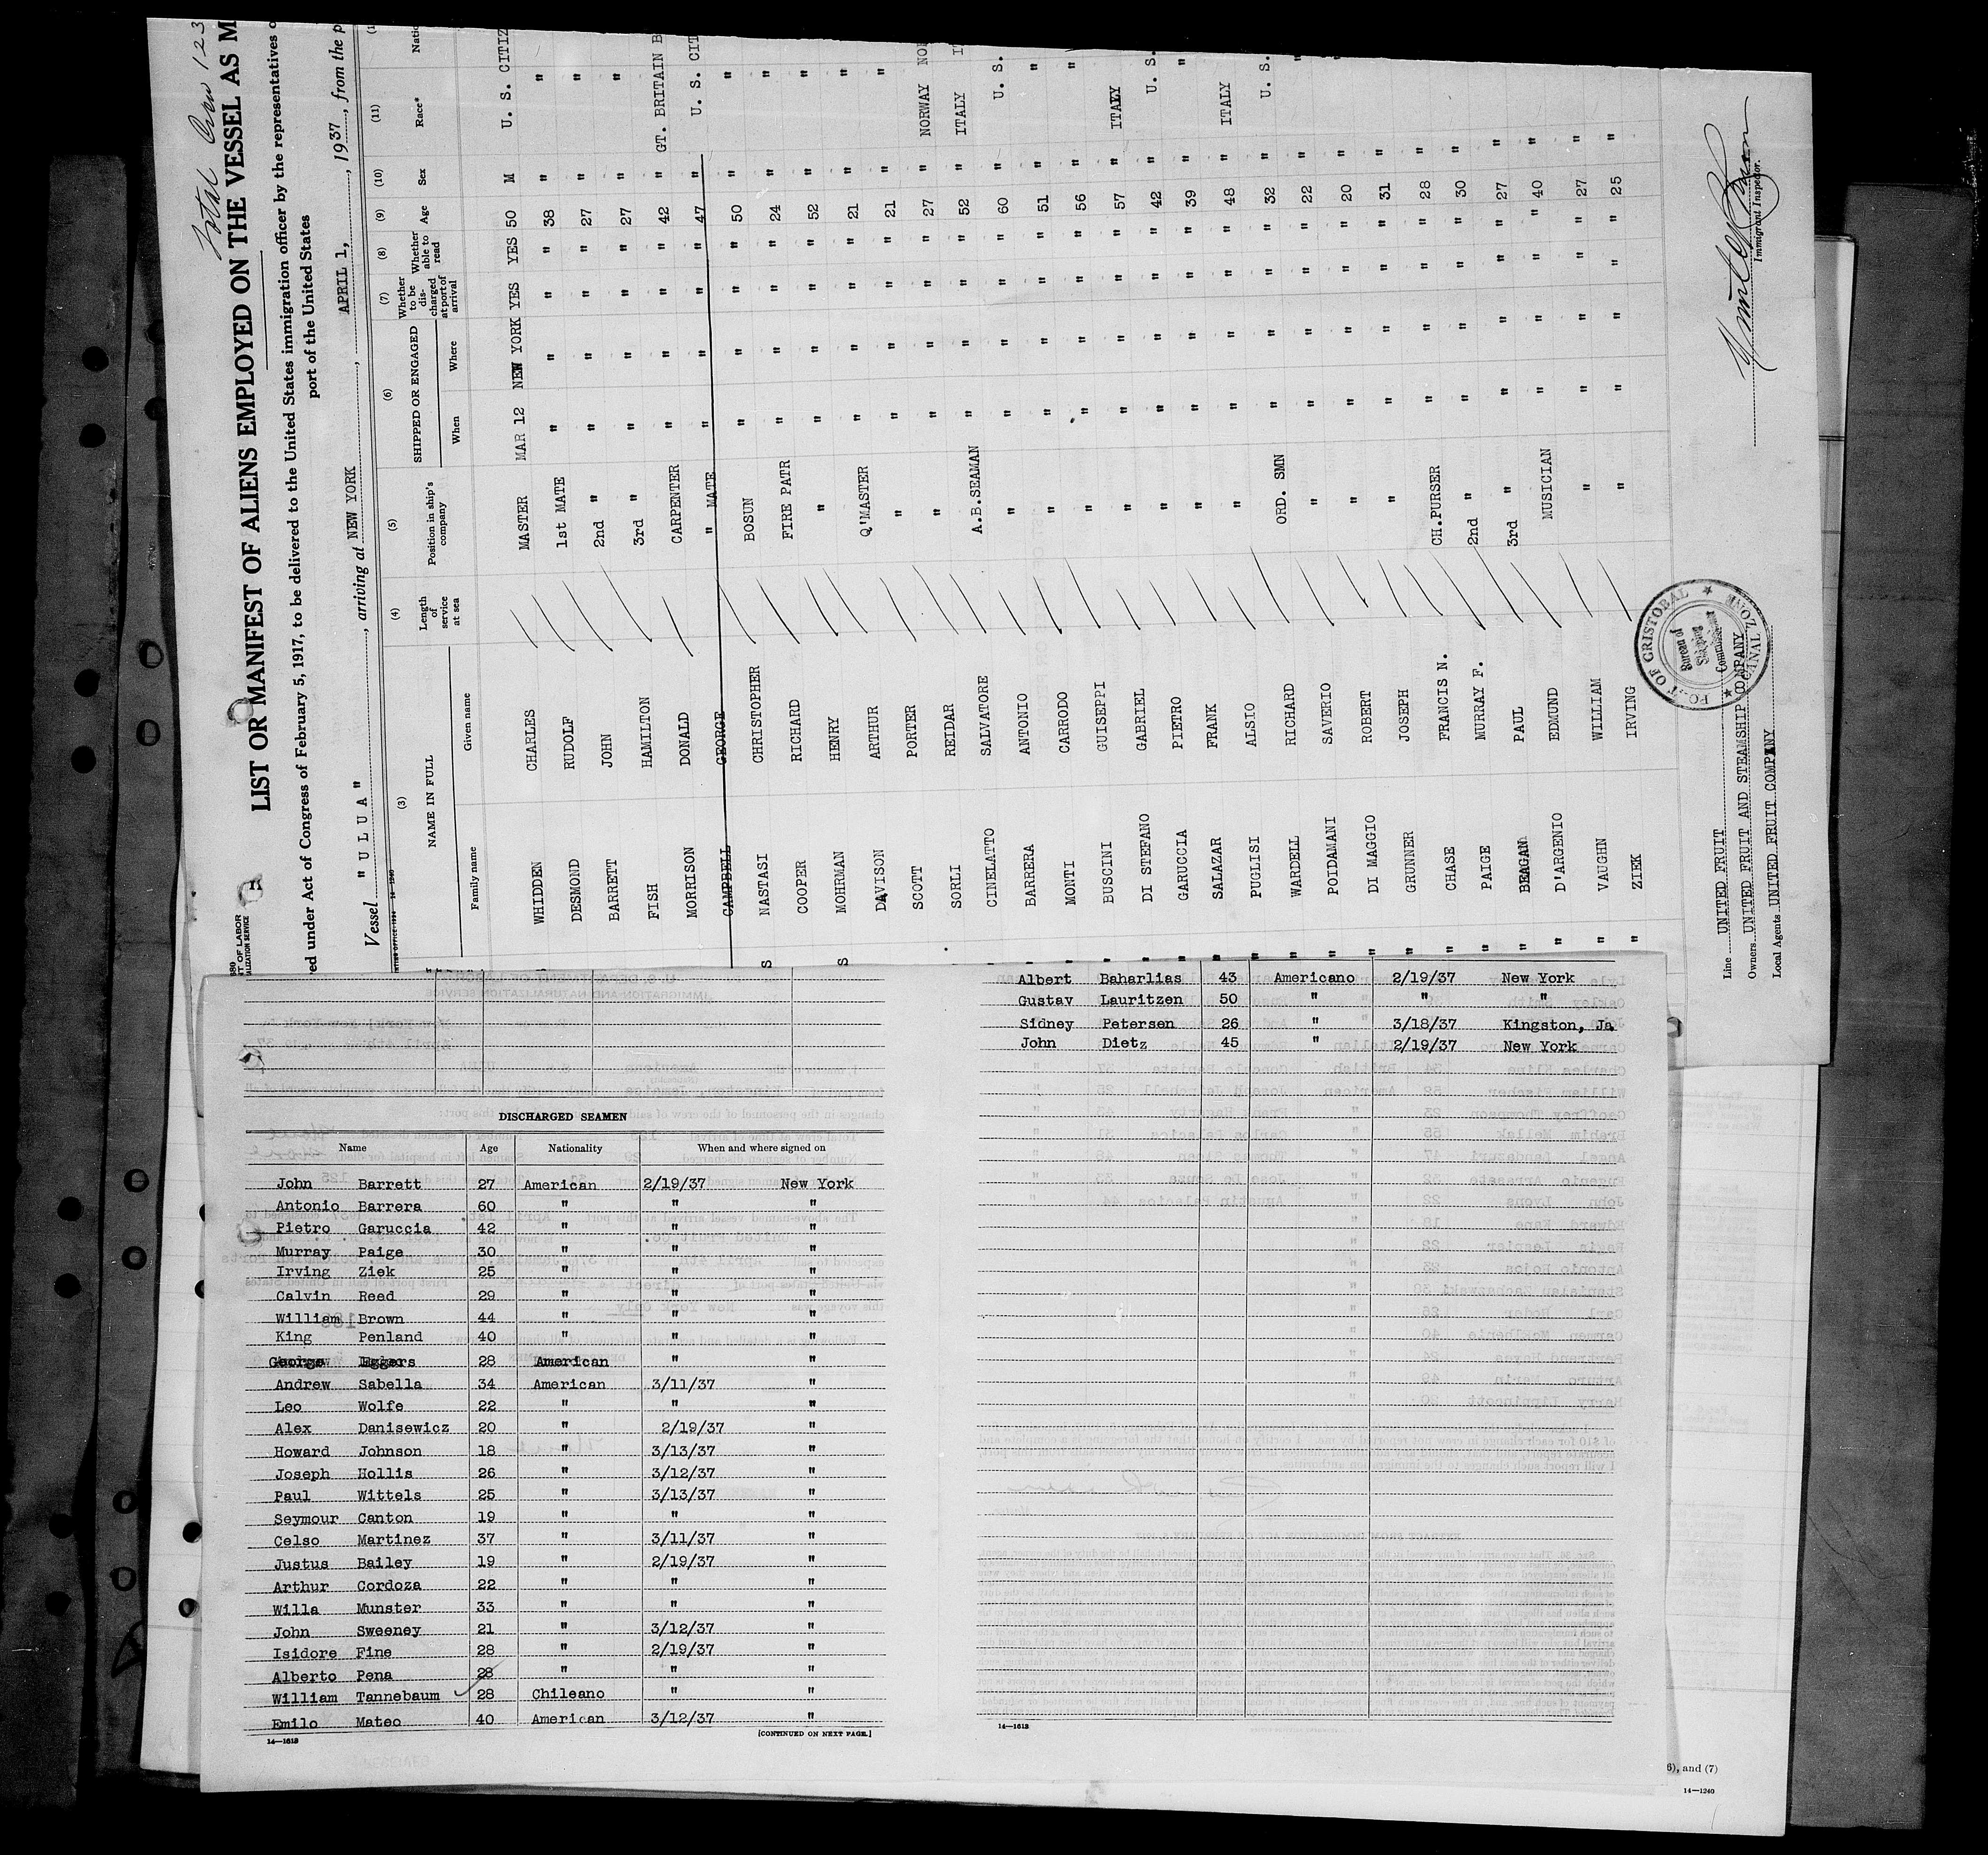 Total Crew 123
LIST OR MANIFEST OF ALIENS EMPLOYED ON THE VESSEL AS M
red under Act of Congress of February 5, 1917, to be delivered to the United States immigration officer by the representatives o
port of the United States
Vessel "ULUA" , arriving at NEW YORK , APRIL 1, , 1937 , from the p
(3) (4) (5) (6) (7) (8) (9) (10) (11)
NAME IN FULL Length of service at sea Position in ship's company SHIPPED OR ENGAGED Whether to be discharged at port of arrival Whether able to read Age Sex Race* Natio
Family name Given name When Where
WHIDDEN CHARLES MASTER MAR 12 NEW YORK YES YES 50 M U. S. CITIZ
DESMOND RUDOLF 1st MATE " " " " 38 " "
BARRETT JOHN 2nd " " " " " 27 " "
FISH HAMILTON 3rd " " " " " 27 " "
MORRISON DONALD CARPENTER " " " " 42 " GT. BRITAIN B
CAMPBELL GEORGE " MATE " " " " 47 " U. S. CIT
NASTASI CHRISTOPHER BOSUN " " " " 50 " "
COOPER RICHARD FIRE PATR " " " " 24 " "
MOHRMAN HENRY " " " " " 52 " "
DAVISON ARTHUR Q'MASTER " " " " 21 " "
SCOTT PORTER " " " " " 21 " "
SORLI REIDAR " " " " " 27 " NORWAY NOR
CINELATTO SALVATORE A.B.SEAMAN " " " " 52 " ITALY IT
BARRERA ANTONIO " " " " " 60 " U. S.
MONTI CARRODO " " " " " 51 " "
BUSCINI GUISEPPI " " " " " 56 " "
DI STEFANO GABRIEL " " " " " 57 " ITALY
GARUCCIA PIETRO " " " " " 42 " U. S.
SALAZAR FRANK " " " " " 39 " "
PUGLISI ALSIO " " " " " 48 " ITALY
WARDELL RICHARD ORD. SMN " " " " 32 " U. S.
POIDAMANI SAVERIO " " " " " 22 " "
DI MAGGIO ROBERT " " " " " 20 " "
GRUNNER JOSEPH " " " " " 31 "
CHASE FRANCIS N. CH.PURSER " " " " 28 "
PAIGE MURRAY F. 2nd " " " " " 30 "
BEAGAN PAUL 3rd " " " " " 27 "
D'ARGENIO EDMUND MUSICIAN " " " " 40 "
VAUGHN WILLIAM " " " " " 27 "
ZIEK IRVING " " " " " 25 "
Line UNITED FRUIT
Owners UNITED FRUIT AND STEAMSHIP COMPANY
Local Agents UNITED FRUIT COMPANY
PORT OF CRISTOBAL
CANAL ZONE
Bureau of Shipping Commissioner
Immigrant Inspector.
DISCHARGED SEAMEN
Name Age Nationality When and where signed on
John Barrett 27 American 2/19/37 New York
Antonio Barrera 60 " " "
Pietro Garuccia 42 " " "
Murray Paige 30 " " "
Irving Ziek 25 " " "
Calvin Reed 29 " " "
William Brown 44 " " "
King Penland 40 " " "
George Eggers 28 American " "
Andrew Sabella 34 American 3/11/37 "
Leo Wolfe 22 " " "
Alex Danisewicz 20 " 2/19/37 "
Howard Johnson 18 " 3/13/37 "
Joseph Hollis 26 " 3/12/37 "
Paul Wittels 25 " 3/13/37 "
Seymour Canton 19 " " "
Celso Martinez 37 " 3/11/37 "
Justus Bailey 19 " 2/19/37 "
Arthur Cordoza 22 " " "
Willa Munster 33 " " "
John Sweeney 21 " 3/12/37 "
Isidore Fine 28 " 2/19/37 "
Alberto Pena 28 " " "
William Tannebaum 28 Chileano " "
Emilo Mateo 40 American 3/12/37 "
14—1613 [CONTINUED ON NEXT PAGE.]
Albert Baharlias 43 Americano 2/19/37 New York
Gustav Lauritzen 50 " " "
Sidney Petersen 26 " 3/18/37 Kingston, Ja
John Dietz 45 " 2/19/37 New York
14—1613
6), and (7)
14—1240